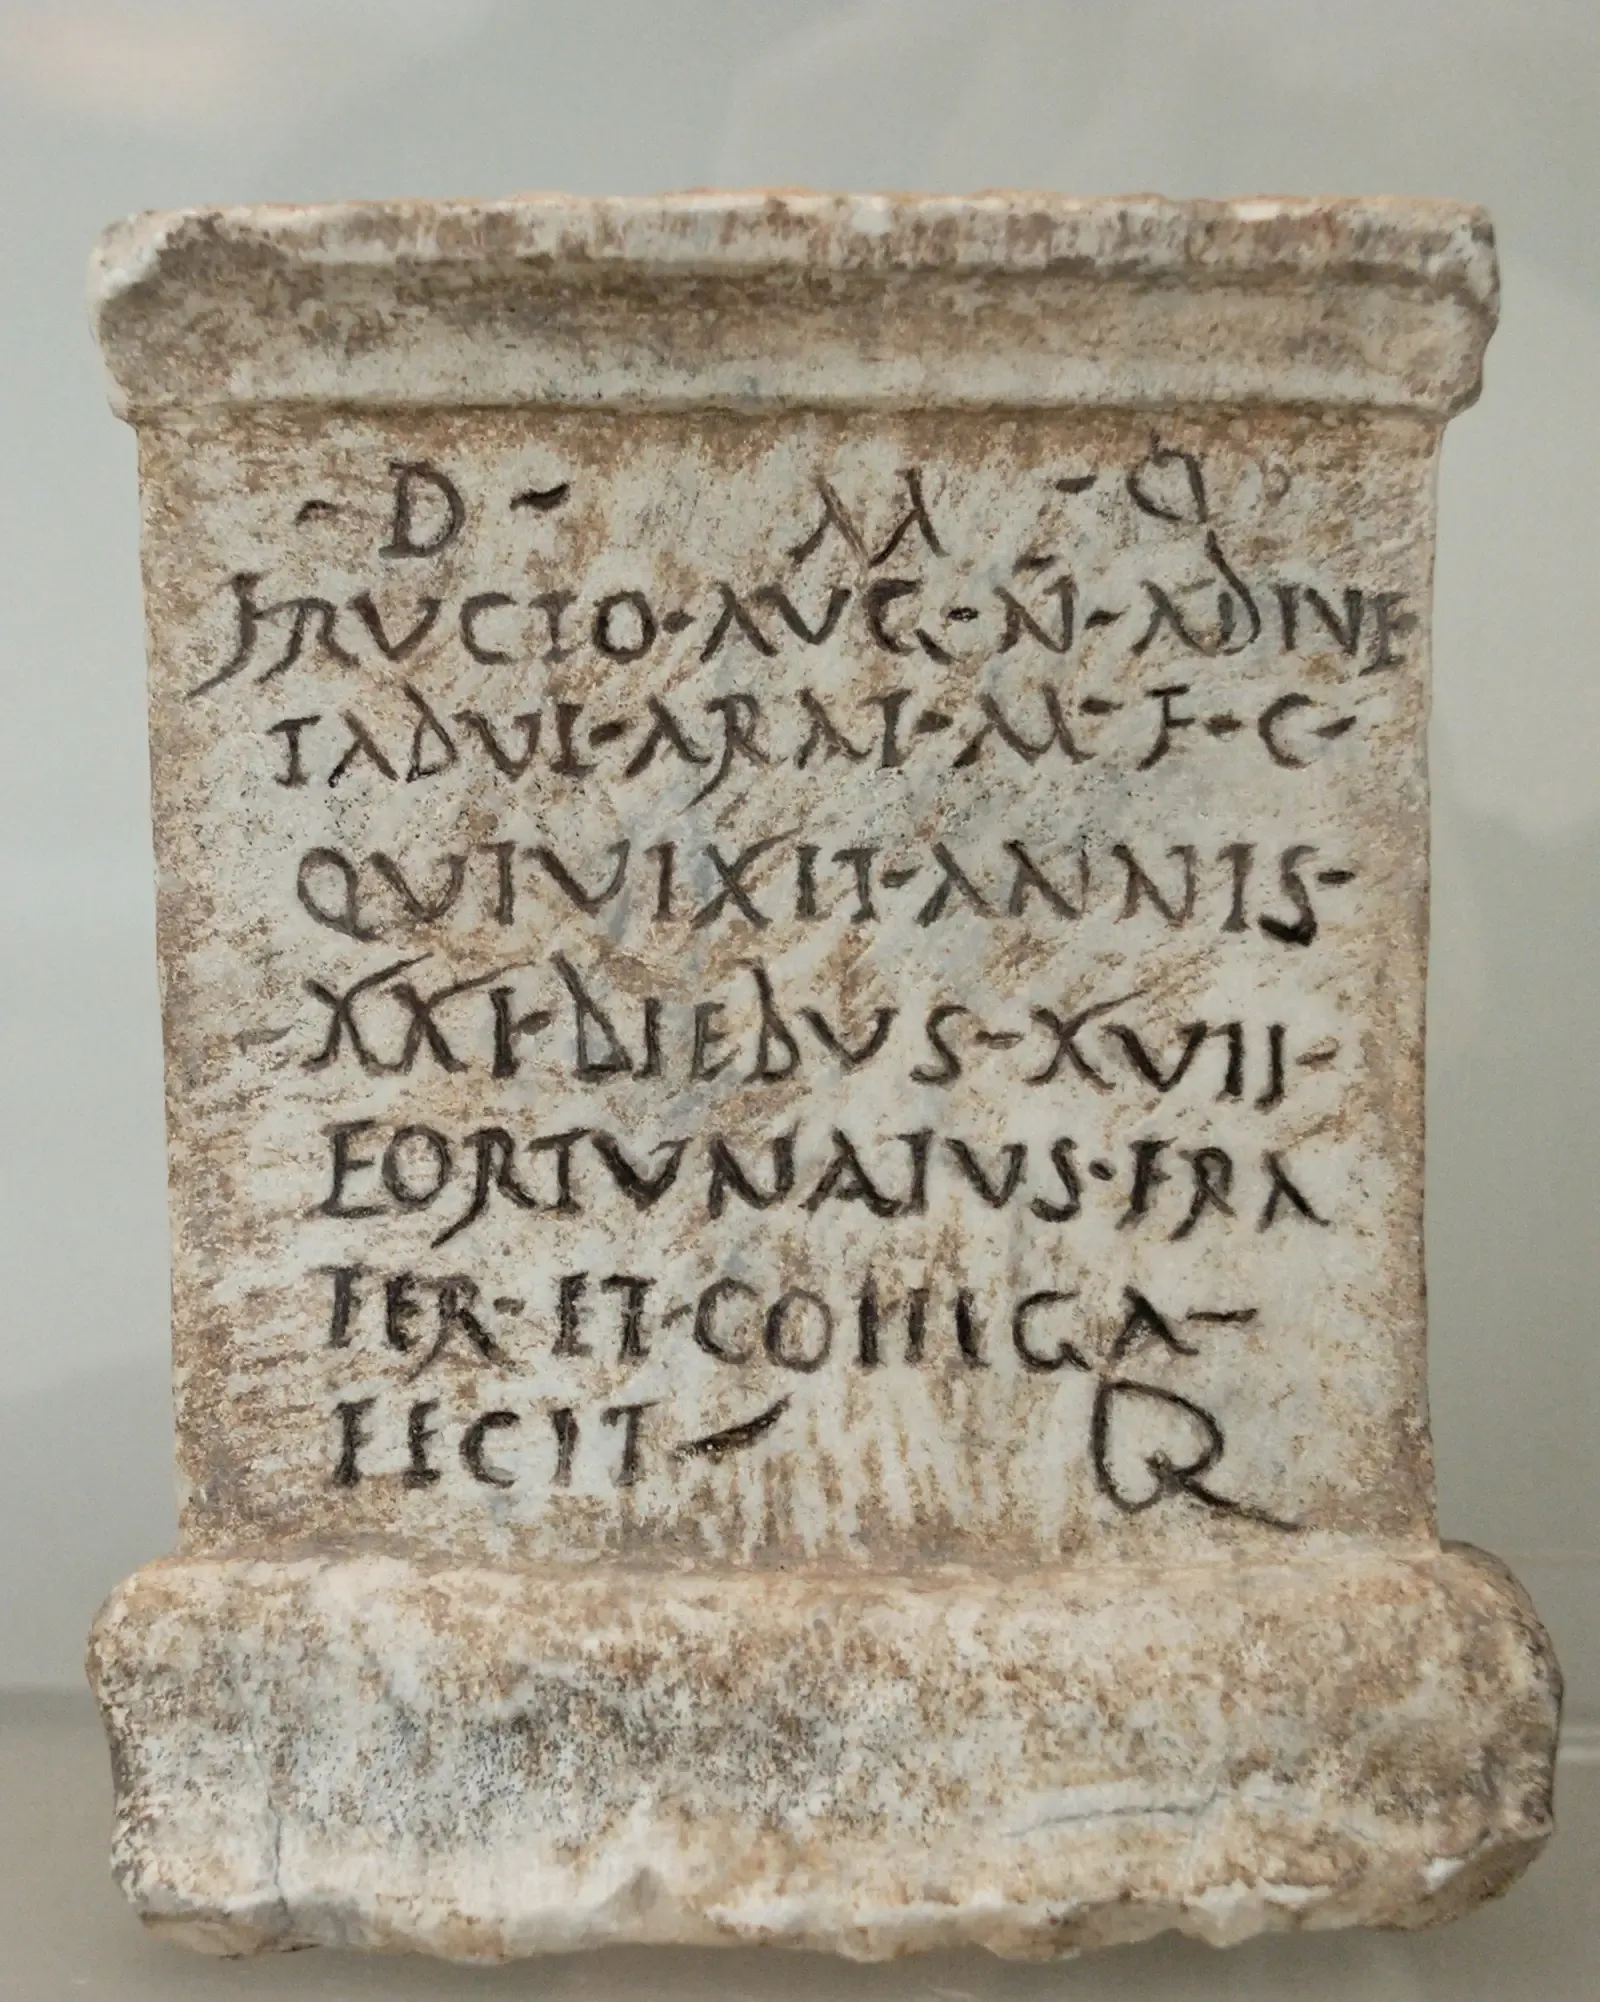 D M
FRUCIO · AUG · N · ADIVE
IADVI · ARAI · M · F · C ·
QUIVIXIT · ANNIS ·
XXI · DIEBUS · XVII ·
FORTVNATVS · FRA
TER · ET · CONIGA
FECIT